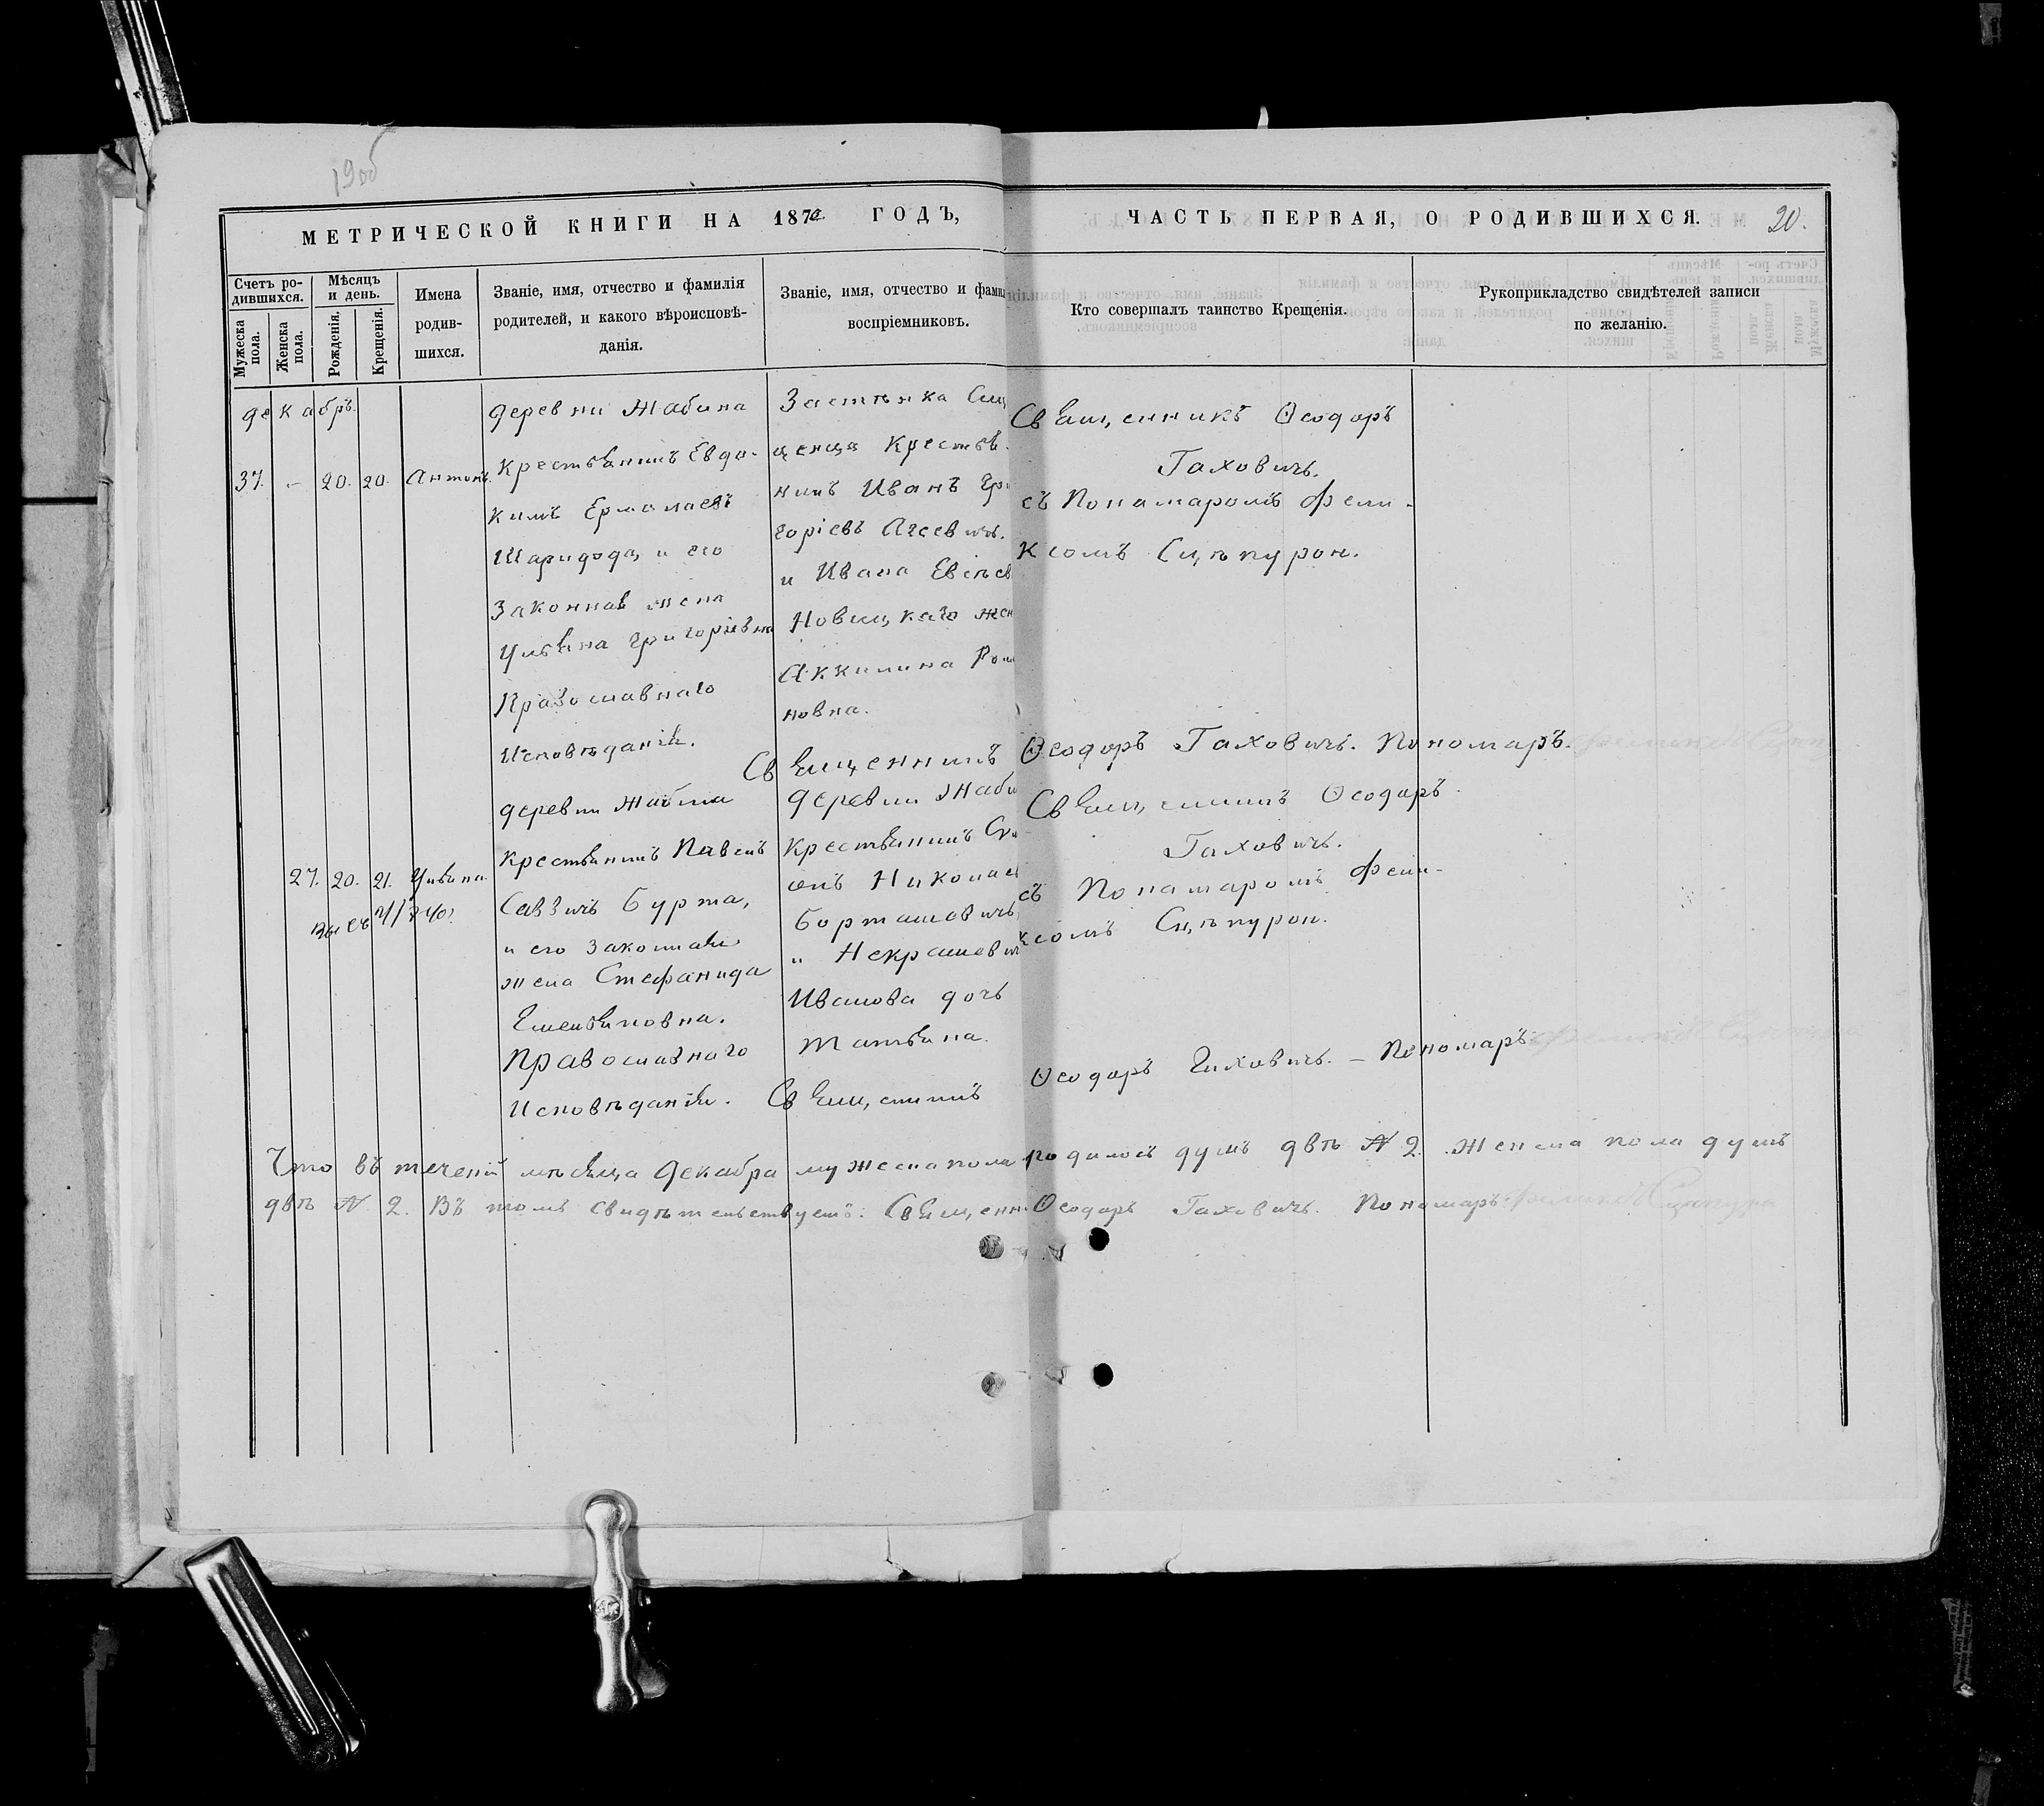 190об
МЕТРИЧЕСКОЙ КНИГИ НА 1870 ГОДЪ,
ЧАСТЬ ПЕРВАЯ, О РОДИВШИХСЯ.
20.
Счетъ родившихся.
Мужеска пола.
Женска пола.
Мѣсяцъ и день.
Рожденія.
Крещенія.
Имена
родив-
шихся.
Званіе, имя, отчество и фамилія
родителей, и какого вѣроисповѣ-
данія.
Званіе, имя, отчество и фами
воспріемниковъ.
Кто совершалъ таинство Крещенія.
Рукоприкладство свидѣтелей записи
по желанію.
декабрь
37. – 20. 20. Антонъ.
деревни Жабина
Крестьянинъ Евдо-
кимъ Ермолаевъ
и его
Законная жена
Ульяна Григоріевна
Православнаго
Исповѣданія.
Застѣнка
Крестья
нинъ Иванъ Гри
горіевъ Агеевичъ.
и Ивана
Новицкаго жен
Аккилина Ром
новна.
Священникъ Ѳеодоръ
Гаховичъ.
съ Пономаромъ Фели-
ксомъ Сцѣпурон.
Священникъ Ѳеодоръ Гаховичъ. Пономаръ
27. 20. 21. Ульяна
деревни Жабина
Крестьянинъ Павелъ
Саввичъ Бурта,
и его законная
жена Стефанида
Емельяновна.
Православнаго
Исповѣданія.
деревни Жаби
Крестьянинъ
Николаев
и Некрашевич
Иванова дочь
Татьяна.
Священникъ Ѳеодоръ
Гаховичъ.
съ Пономаромъ Фели-
ксомъ Сцѣпурон.
Священникъ Ѳеодоръ Гаховичъ. – Пономаръ
Что въ теченіи мѣсяца Декабра мужеска пола родилось душъ двѣ № 2. Женска пола душъ
двѣ № 2. Въ томъ свидѣтельствуетъ. Священн. Ѳеодоръ Гаховичъ. Пономаръ